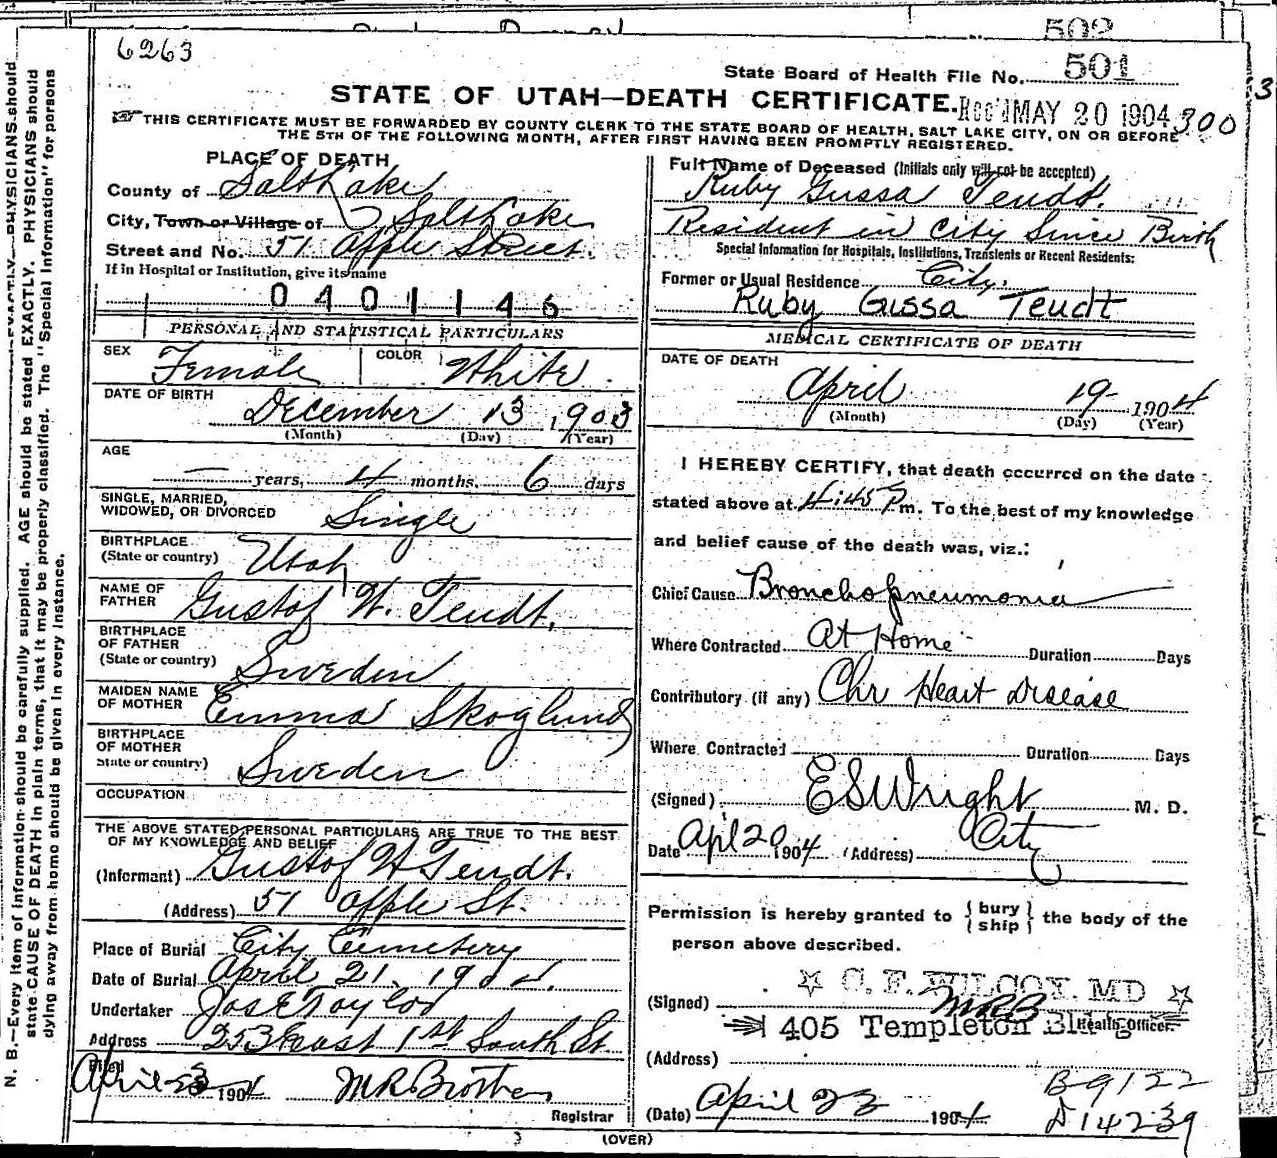 502
6263
State Board of Health File No. 501
STATE OF UTAH—DEATH CERTIFICATE.
Rec'd MAY 20 1904 300
THIS CERTIFICATE MUST BE FORWARDED BY COUNTY CLERK TO THE STATE BOARD OF HEALTH, SALT LAKE CITY, ON OR BEFORE
THE 5TH OF THE FOLLOWING MONTH, AFTER FIRST HAVING BEEN PROMPTLY REGISTERED.
N. B.—Every item of information should be carefully supplied. AGE should be stated EXACTLY. PHYSICIANS should
state CAUSE OF DEATH in plain terms, that it may be properly classified. The "Special Information" for persons
dying away from home should be given in every instance.
PLACE OF DEATH
County of Salt Lake
City, Town or Village of Salt Lake
Street and No. 57 Apple Street.
If in Hospital or Institution, give its name
0 4 0 1 1 4 6
PERSONAL AND STATISTICAL PARTICULARS
SEX Female COLOR White
DATE OF BIRTH
December 13, 1903
(Month) (Day) (Year)
AGE
— years, 4 months, 6 days
SINGLE, MARRIED,
WIDOWED, OR DIVORCED Single
BIRTHPLACE
(State or country) Utah
NAME OF
FATHER Gustof W. Teudt.
BIRTHPLACE
OF FATHER
(State or country) Sweden
MAIDEN NAME
OF MOTHER Emma Skoglund
BIRTHPLACE
OF MOTHER
State or country) Sweden
OCCUPATION
THE ABOVE STATED PERSONAL PARTICULARS ARE TRUE TO THE BEST
OF MY KNOWLEDGE AND BELIEF
(Informant) Gustof W Teudt.
(Address) 57 Apple St.
Place of Burial City Cemetery
Date of Burial April 21, 1904.
Undertaker Jos E Taylor
Address 253 East 1st South St.
Filed
April 23 1904 M R Brothers
Registrar
Full Name of Deceased (Initials only will not be accepted)
Ruby Gussa Teudt.
Resident in City Since Birth
Special Information for Hospitals, Institutions, Transients or Recent Residents:
Former or Usual Residence City.
Ruby Gussa Teudt
MEDICAL CERTIFICATE OF DEATH
DATE OF DEATH
April 19- 1904
(Month) (Day) (Year)
I HEREBY CERTIFY, that death occurred on the date
stated above at 4:45 P m. To the best of my knowledge
and belief cause of the death was, viz.:
Chief Cause Broncho pneumonia
Where Contracted At Home Duration Days
Contributory (if any) Chr Heart Disease
Where Contracted Duration Days
(Signed) E S Wright M. D.
Date Apl 20 1904 (Address) City
Permission is hereby granted to { bury ship } the body of the
person above described.
C. F. WILCOX. MD
(Signed) MRB
405 Templeton Bldg Health Officer.
(Address)
(Date) April 23 1904
B 9122
D 14239
(OVER)